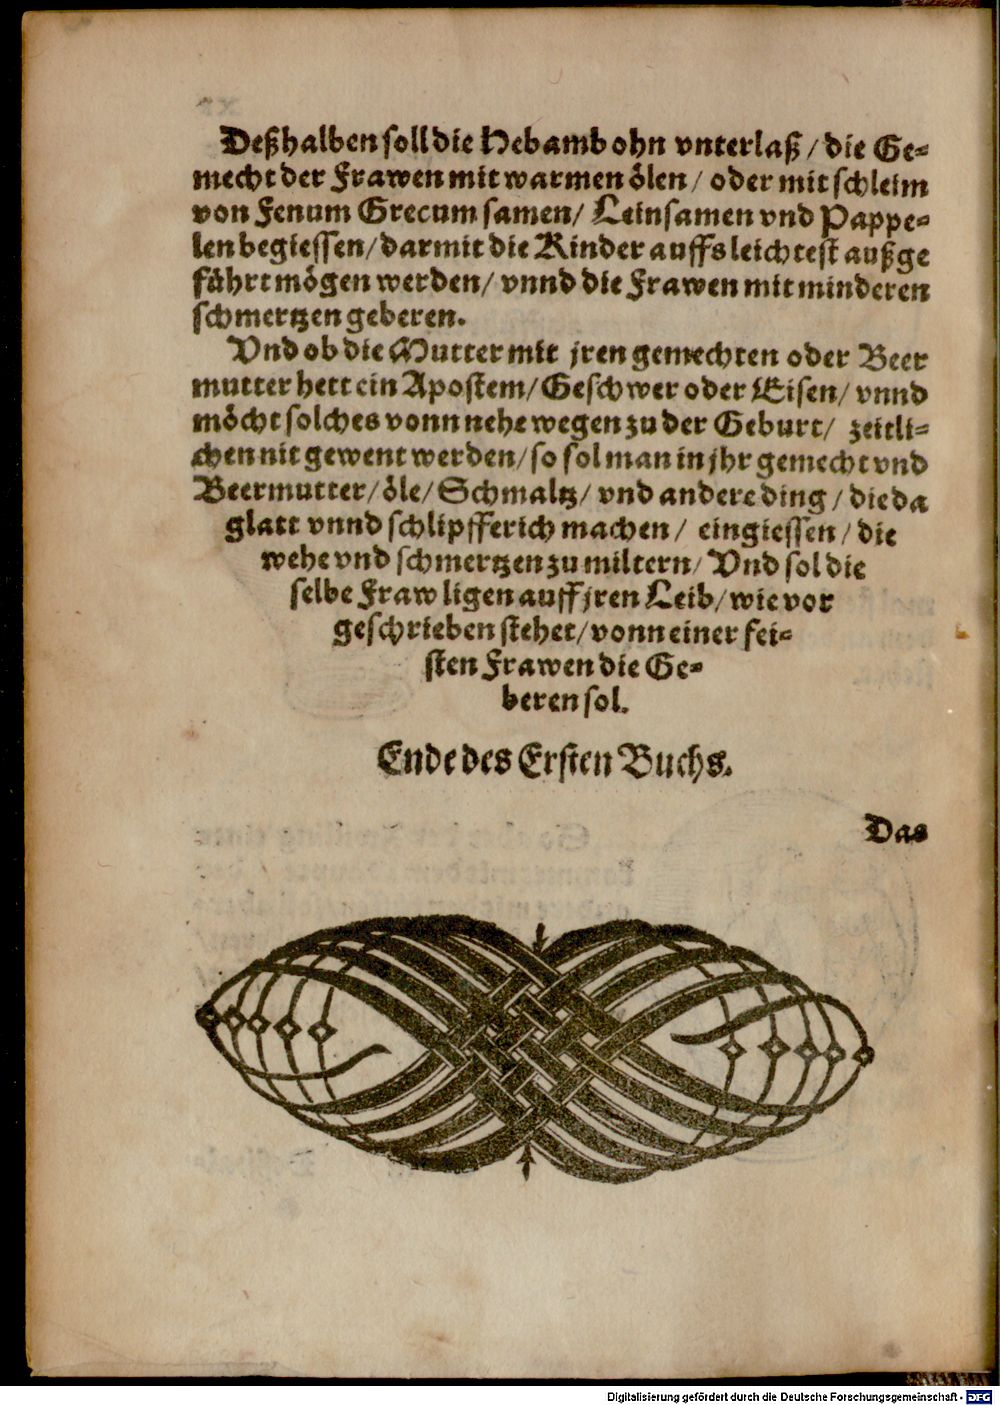 Deßhalben soll die Hebamb ohn vnterlaß / die Ge-
mecht der Frawen mit warmen ölen / oder mit schleim
von Fenum Grecum samen / Leinsamen vnd Pappe-
len begiessen / darmit die Kinder auffs leichtest auß ge
führt mögen werden / vnnd die Frawen mit minderen
schmertzen geberen.
Vnd ob die Mutter mit jren gemechten oder Beer
mutter hett ein Apostem / Geschwer oder Eisen / vnnd
möcht solches vonn nehe wegen zu der Geburt / zeitli-
chen nit gewent werden / so sol man in jhr gemecht vnd
Beermutter / öle / Schmaltz / vnd andere ding / die da
glatt vnnd schlipfferich machen / eingiessen / die
wehe vnd schmertzen zu miltern / Vnd sol die
selbe Fraw ligen auff jren Leib / wie vor
geschrieben stehet / vonn einer fei-
sten Frawen die Ge-
beren sol.
Ende des Ersten Buchs.
Das
Digitalisierung gefördert durch die Deutsche Forschungsgemeinschaft - DFG